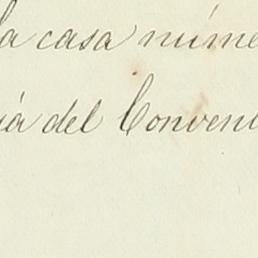 la casa núme
ia del Conven